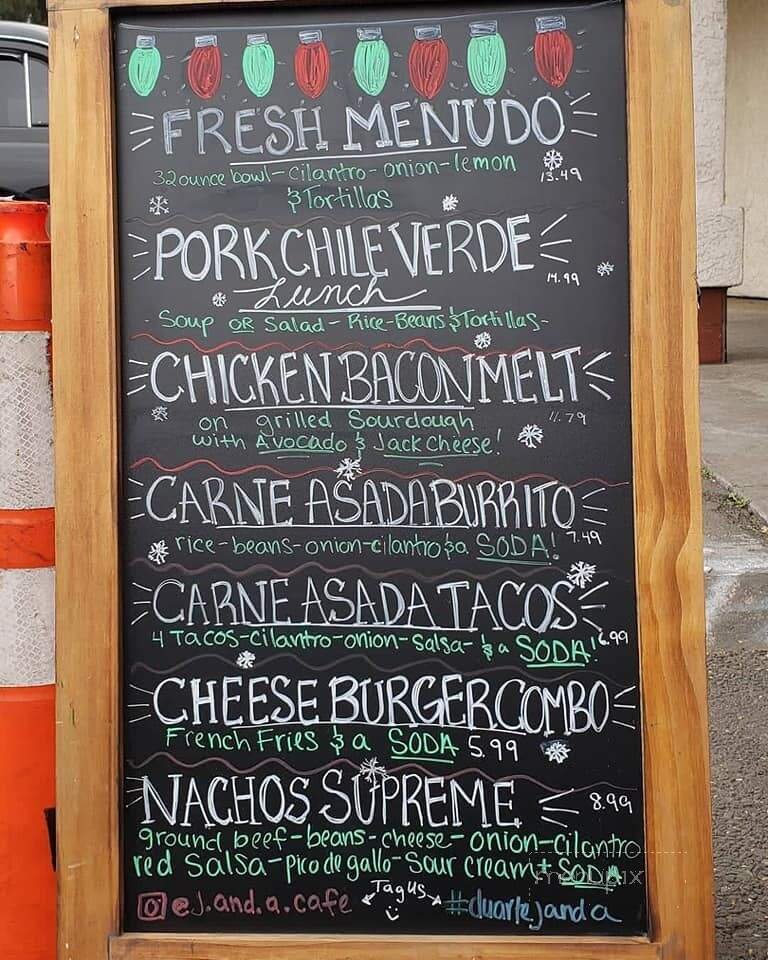 FRESH MENUDO
32ounce bowl-cilantro-onion-lemon 13.49
&Tortillas
PORK CHILE VERDE
Lunch 14.99
- Soup OR Salad - Rice-Beans & Tortillas-
CHICKEN BACON MELT
on grilled Sourdough 11.79
with Avocado & Jack Cheese!
CARNE ASADA BURRITO
rice-beans-onion-cilantro & a SODA! 7.49
CARNE ASADA TACOS
4 Tacos-cilantro-onion-Salsa- & a SODA! 6.99
CHEESE BURGER COMBO
French Fries & a SODA 5.99
NACHOS SUPREME 8.99
ground beef-beans-cheese-onion-cilantro
red Salsa-pico de gallo-Sour cream + SODA
@j.and.a.cafe Tag us #duartejanda
menupix